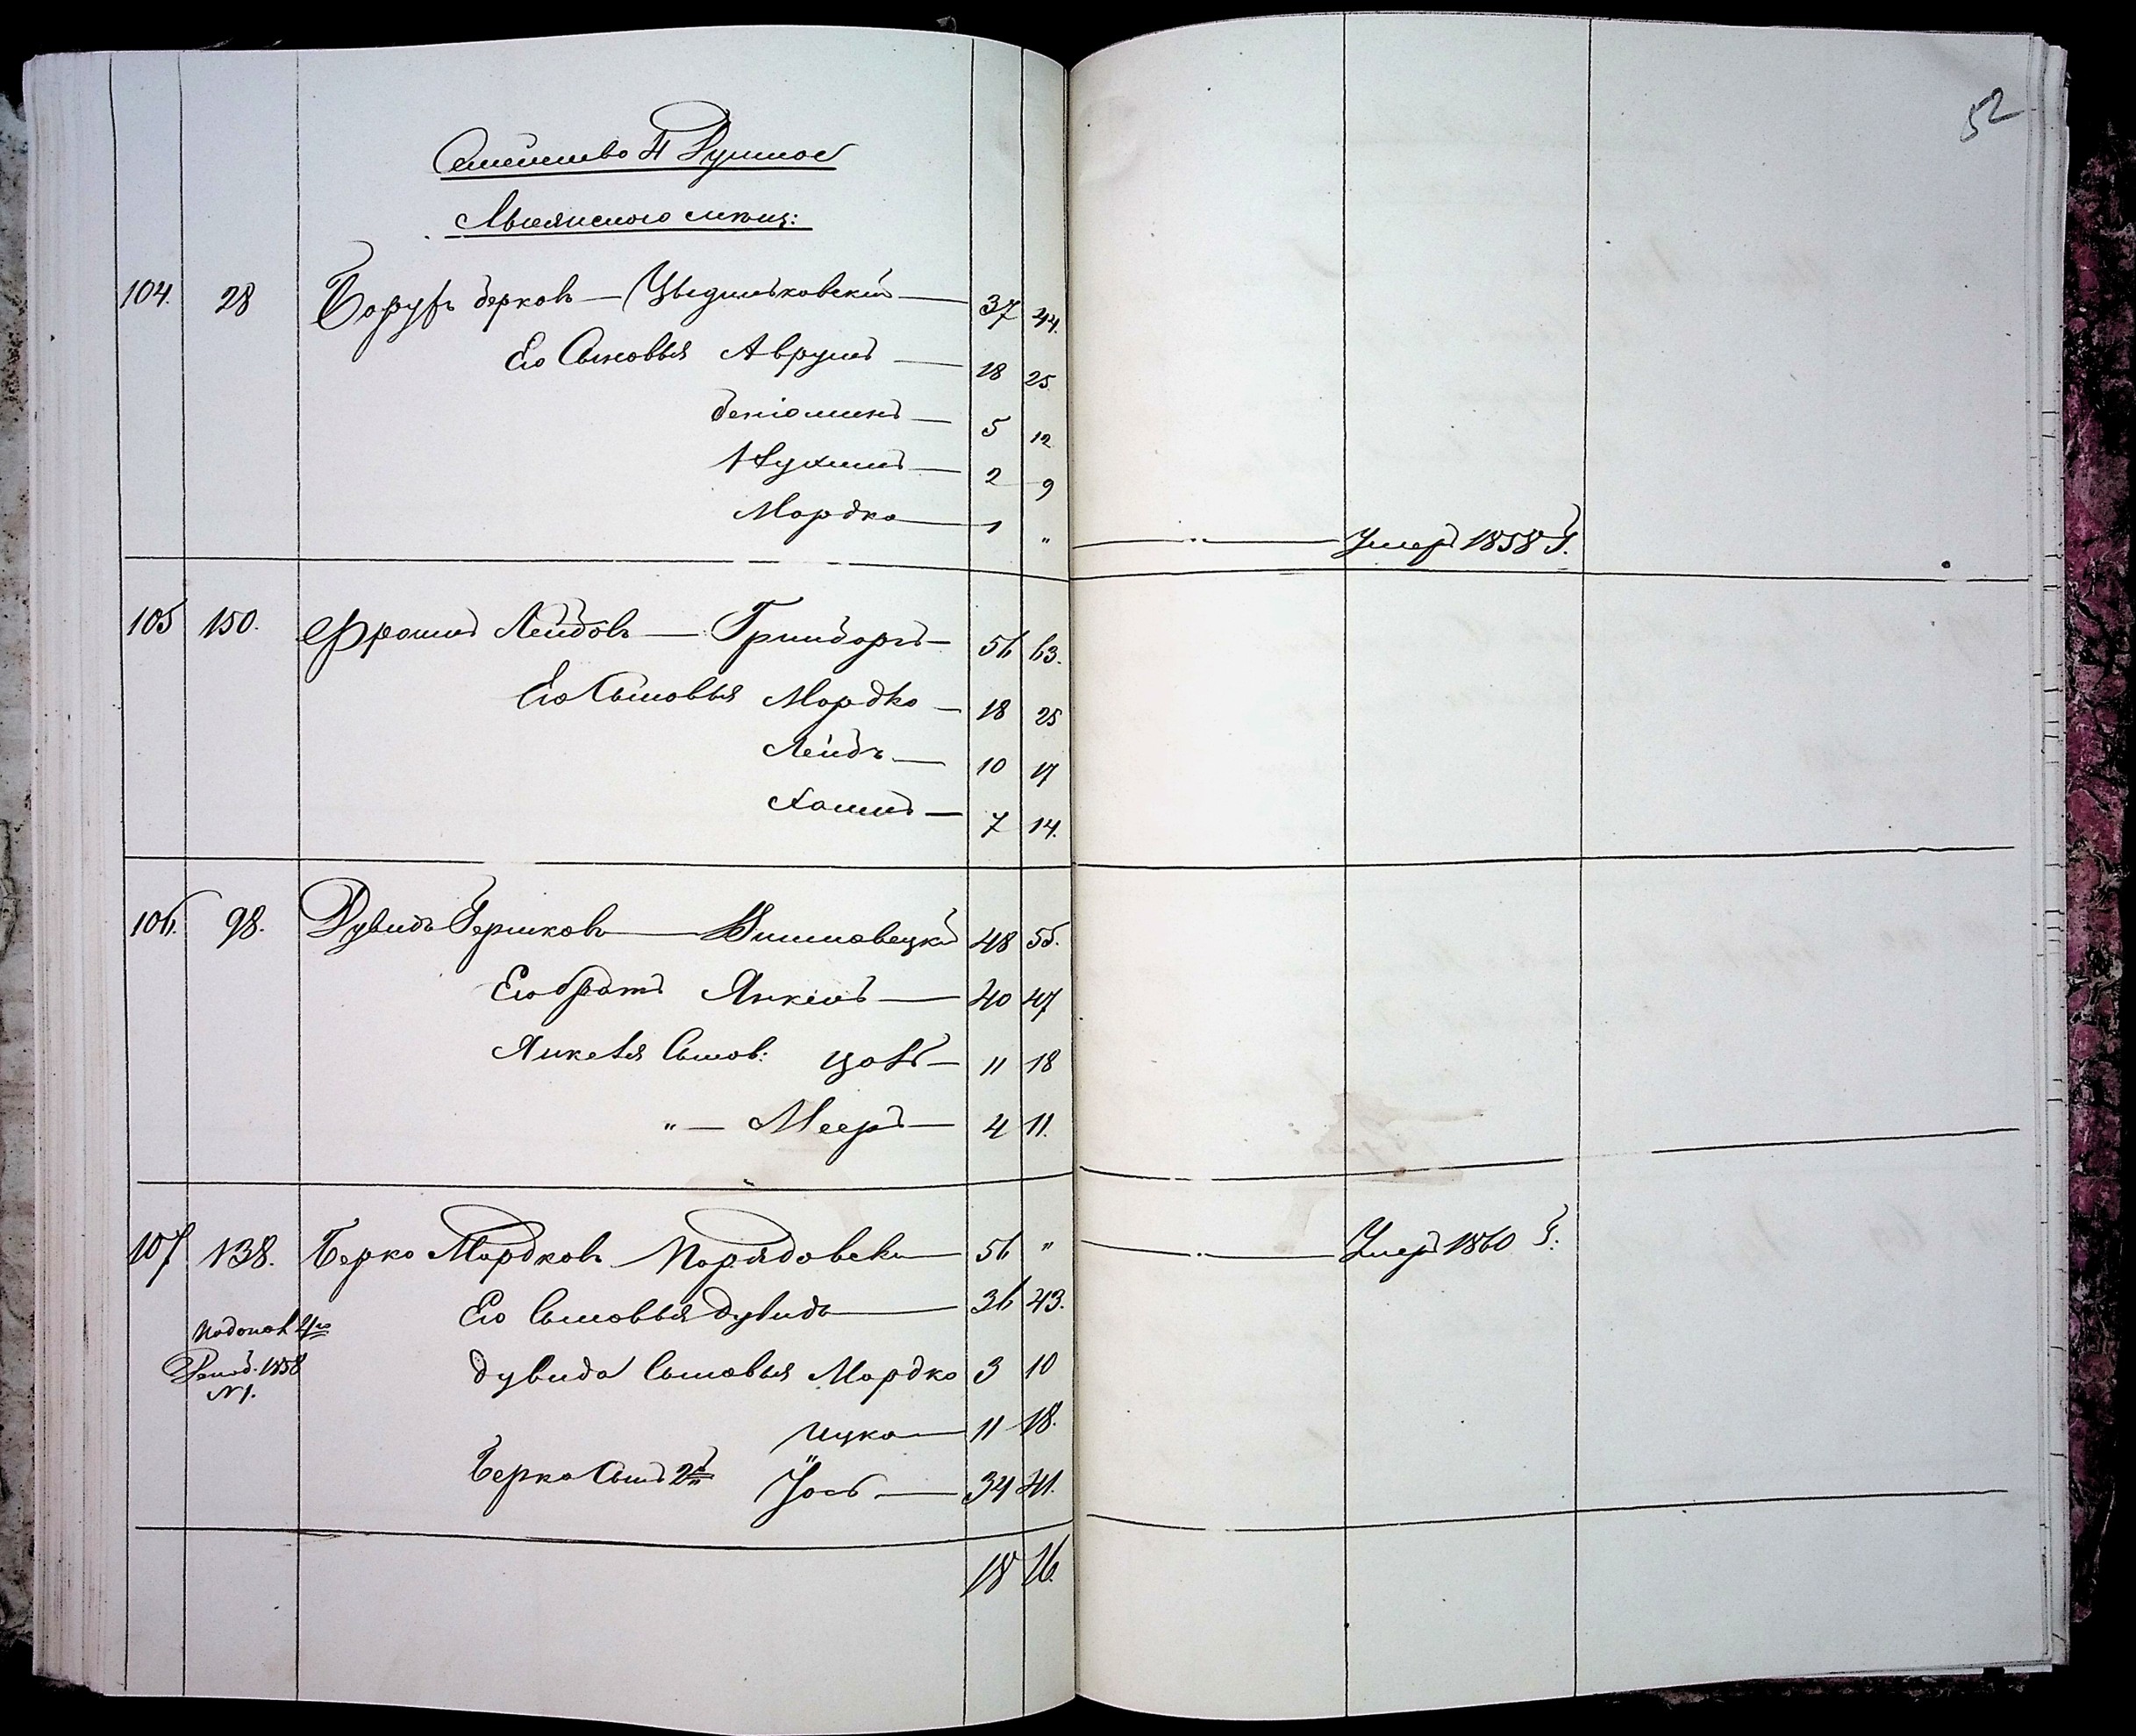 52
Семейство 4 Душное
104. 28 Борухъ Берковъ — Цыдульковскій — 37 44.
Его Сыновья Аврумъ — 18 25
Беніоминъ — 5 12
Нухимъ — 2 9
Мордко — 1 " Умеръ 1858 г.
105 150. Фроимъ Лейбовъ — Гринборгъ — 56 63.
Его Сыновья Мордко — 18 25
Лейбъ — 10 17
Хаимъ — 7 14.
106. 98. Дувидъ Гершковъ — Вишновецкій 48 55.
Его братъ Янкель — 40 47
Янкеля Сынов: — 11 18
" — Мееръ — 4 11.
107 138. Берко Мордковъ 56 " Умеръ 1860 г.
Его Сыновья Дувидъ — 36 43.
Дувида Сыновья Мордко 3 10
1858
№ 1.
Ицко — 11 18.
Берка Сынъ 2й Іось — 34 41.
18 16.